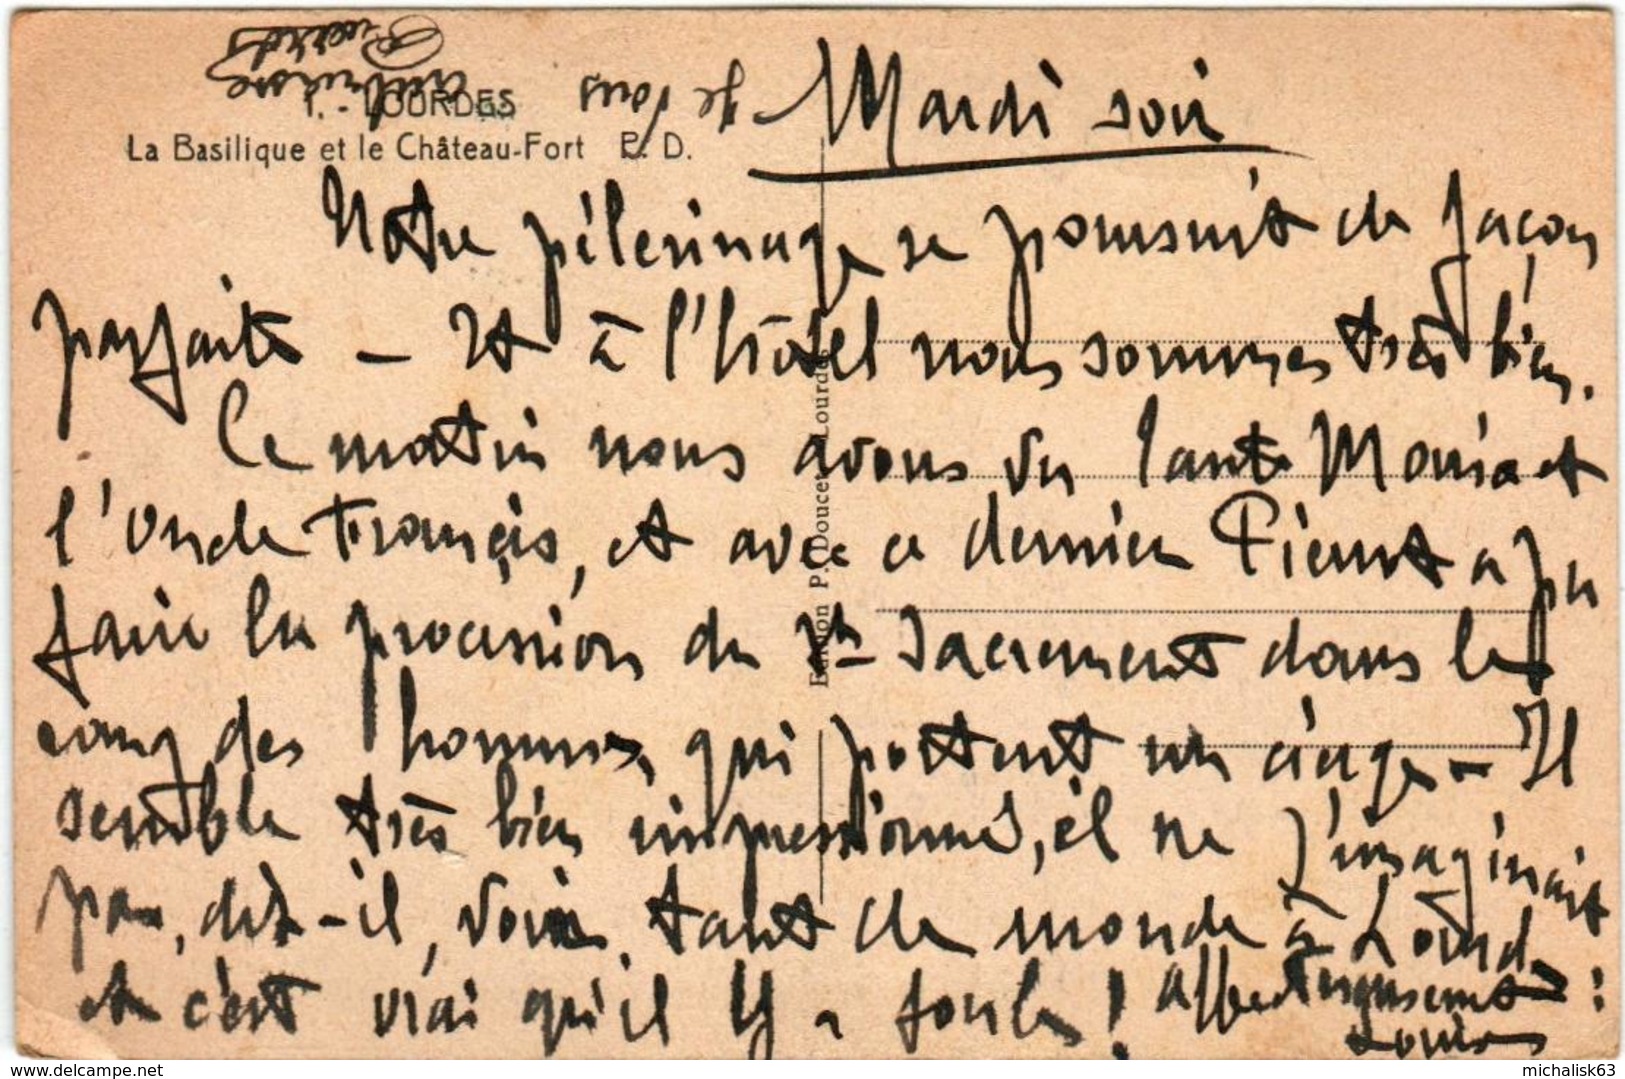 1. - LOURDES
La Basilique et le Château-Fort P. D.
Mardi soir
Notre pèlerinage se poursuit de façon
parfaite - Et à l'hôtel nous sommes très bien.
Ce matin nous avons vu Tante Maria et
l'oncle François, et avec ce dernier Pierrot a pu
faire la procession du St Sacrement dans le
rang des hommes, qui portent un cierge - Il
semble très bien impressionné, il ne s'imaginait
pas, dit-il, voir tant de monde à Lourdes
et c'est vrai qu'il y a foule !
Affectueusement :
Louise
Je vous
embrasse
Pierrot
Edition P. Doucet, Lourdes
www.delcampe.net
michalisk63